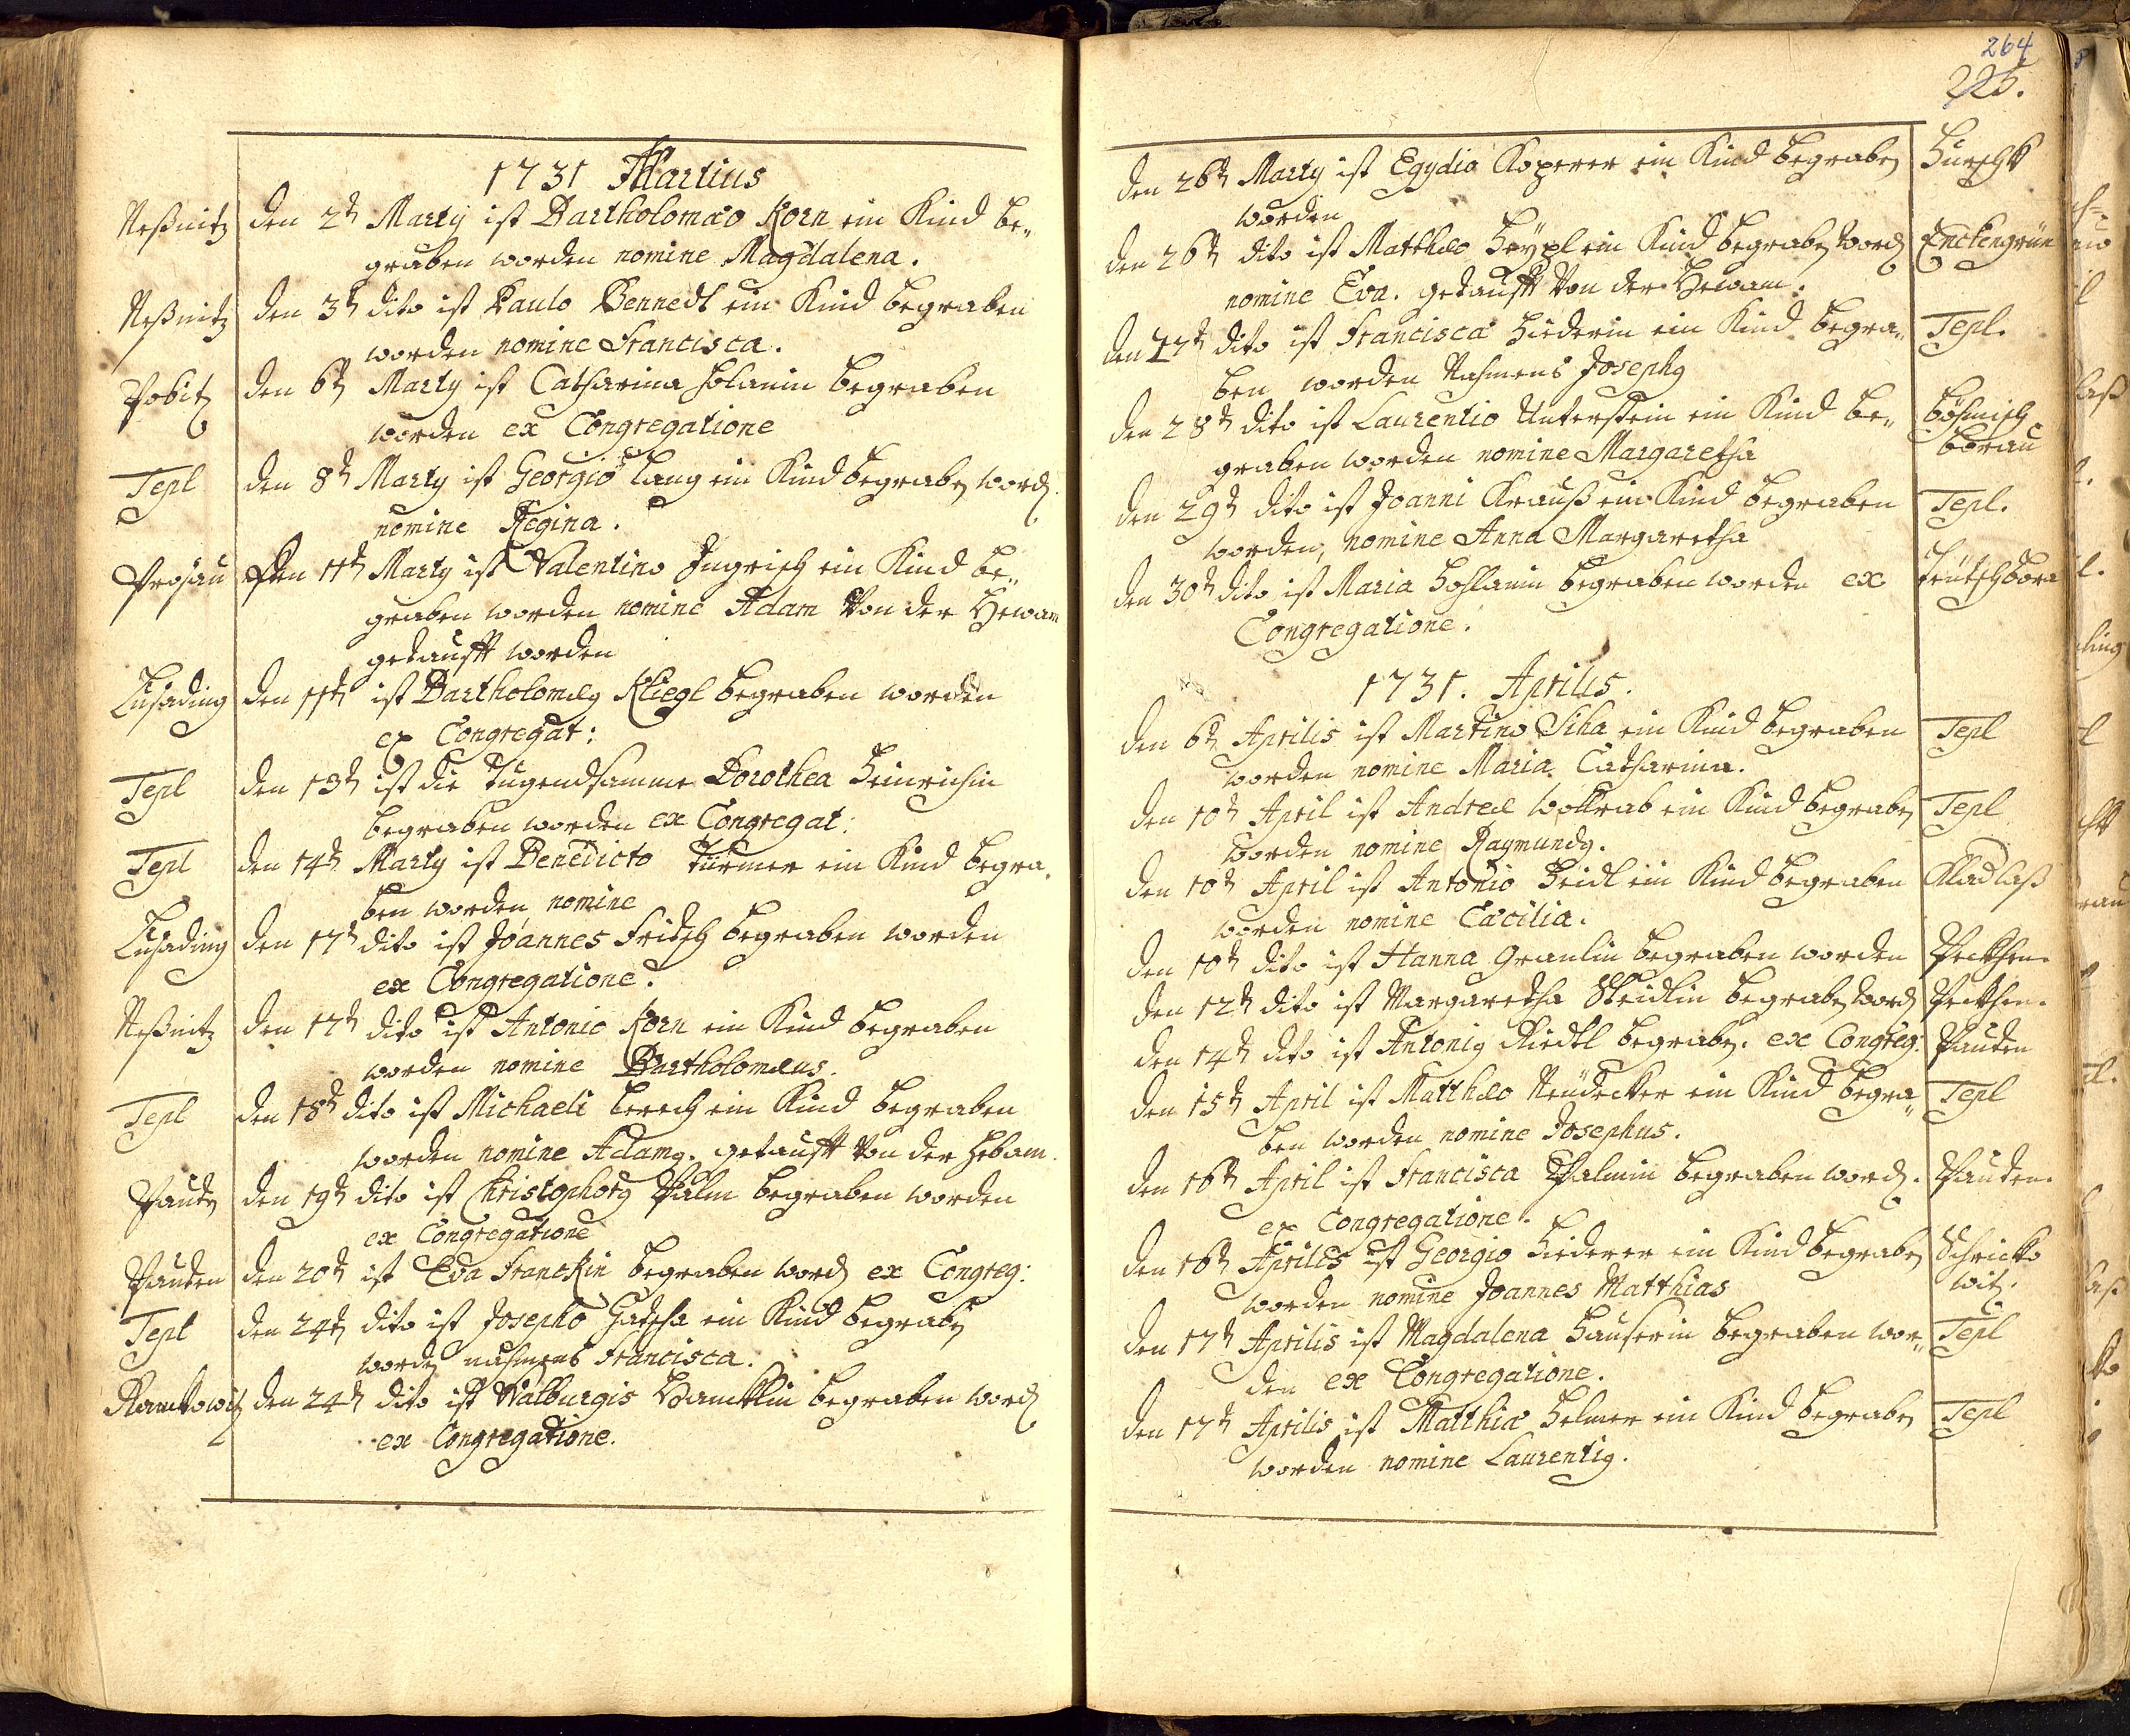 1731 Martius
Neßnitz den 2t Marty ist Bartholomæo Korn ein Kind be„
graben worden nomine Magdalena.
Neßnitz den 3t dito ist Paulo Bennedl ein Kind begraben
worden nomine Francisca.
Pobitz den 6t Marty ist Catharina Holanin begraben
worden ex Congregatione
Tepl den 8t Marty ist Georgio Lang ein Kind begraben word.
nomine Regina.
Prosau den 11t Marty ist Valentino Ingrisch ein Kind be„
graben worden nomine Adam von der Hewam
getaufft worden
Lusading den 11t ist Bartholomæg Kliegl begraben worden
ex Congregat:
Tepl den 13t ist die Tugendsamme Dorothea Heinrichin
begraben worden ex Congregat:
Tepl den 14t Marty ist Benedicto Türmer ein Kind begra„
ben worden nomine
Lusading den 17t dito ist Joannes Fritsch begraben worden
ex Congregatione.
Neßnitz den 17t dito ist Antonio Korn ein Kind begraben
worden nomine Bartholomæus.
Tepl den 18t dito ist Michaeli Lerch ein Kind begraben
worden nomine Adamg. getaufft von der Hebam.
Pauten den 19t dito ist Christophorg Palm begraben worden
ex Congregatione
Pauten den 20t ist Eva Franckin begraben word ex Congreg:
Tepl den 24t dito ist Josepho Hatscha ein Kind begraben
worden nahmens Francisca.
Ramkowitz den 24t dito ist Walburgis begraben word
ex Congregatione.
264
225.
den 26t Marty ist Egydio Koperer ein Kind begraben Hurschk
worden
den 26t dito ist Matthæo Heypl ein Kind begraben word Enckengrün
nomine Eva. getaufft von der Hewam.
den 27t dito ist Francisca Hiederin ein Kind begra„ Tepl.
ben worden Nahmens Josephg
den 28t dito ist Laurentio Unterstein ein Kind be„ böhmisch
graben worden nomine Margaretha borau
den 29t dito ist Joanni Krauß ein Kind begraben Tepl.
worden, nomine Anna Margaretha
den 30t dito ist Maria Hohlanin begraben worden ex Teutschbora
Congregatione.
1731. Aprilis.
den 6t Aprilis ist Martino Siha ein Kind begraben Tepl
worden nomine Maria Catharina.
den 10t April ist Andreæ Wottrab ein Kind begraben Tepl
worden nomine Raymundg.
den 10t April ist Antonio Heidl ein Kind begraben Kladlaß
worden nomine Cæcilia.
den 10t dito ist Hanna Granlin begraben worden Perthen.
den 12t dito ist Margaretha Steidlin begraben word Perthen.
den 14t dito ist Antonig Riedtl begraben. ex Congreg: Pauten
den 15t April ist Matthæo Neudecker ein Kind begra„ Tepl
ben worden nomine Josephus.
den 16t April ist Francisca Palmin begraben word. Pauten.
ex Congregatione.
den 16t Aprilis ist Georgio Hiederer ein Kind begraben Schricko
worden nomine Joannes Matthias witz.
den 17t Aprilis ist Magdalena Hauserin begraben wor„ Tepl
den ex Congregatione.
den 17t Aprilis ist Matthia Helmer ein Kind begraben Tepl
worden nomine Laurentig.